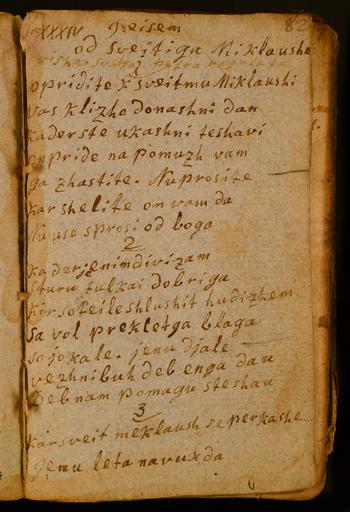 XXXIV Peisem 82
od Sveitiga Miklausha
opridite k sveitmu Miklaushi
vas klizhe donashni dan
kaderste ukashni teshavi
on pride na pomuzh vam
ga zhastite. Nuprosite
kar shelite on vam da
Nu use sprosi od boga
2
kader jenim divizam
sturu tulkai dobriga
kir so teile shlushit hudizhem
Sa vol prekletga blaga
so jokale. jenu djale
vezhni buh deb enga dau
deb nam pomagu steshau
3
kar sveit meklaush se perkashe
jenu leta na vukda